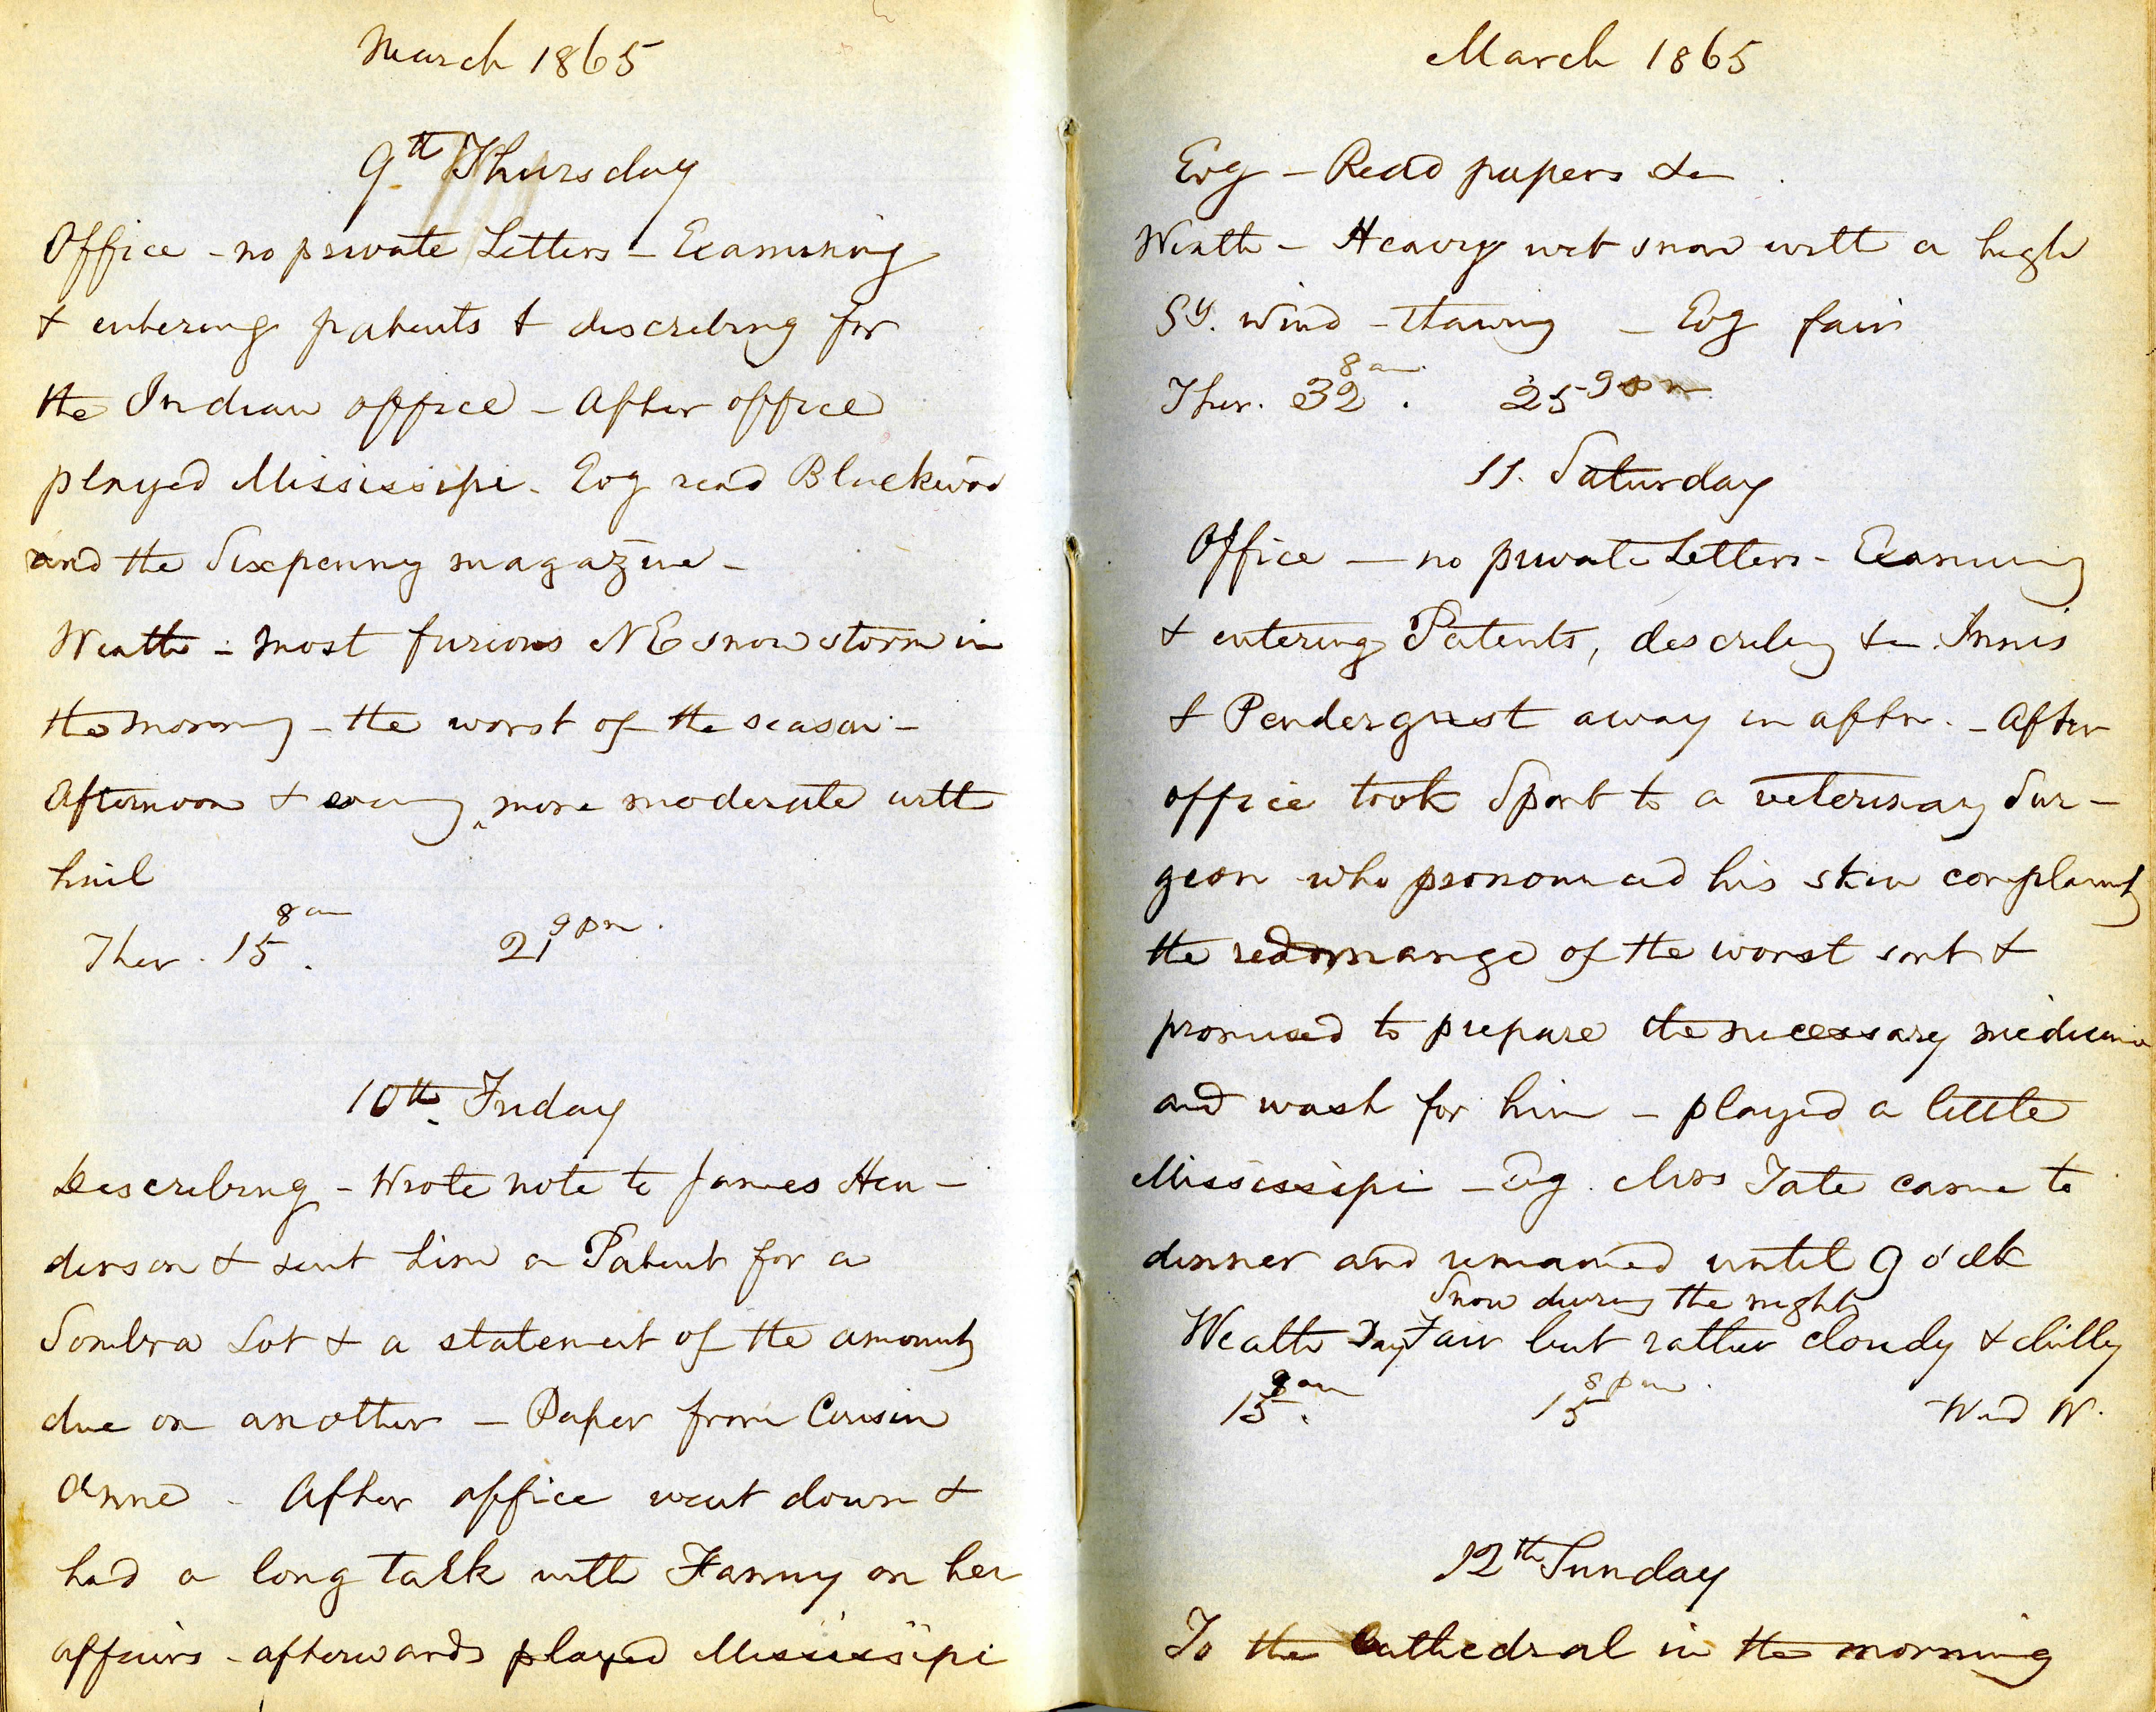 March 1865
9th Thursday
Office - no private Letters - Examining
& entering patents & describing for
the Indian office - After office
played Mississipi - Evg read Blackwood
and the Sixpenny magazine -
Weathr - most furious NE snow storm in
the morning - the worst of the season -
Afternoon & evening more moderate with
hail
Ther. 15 8 am. 21 9 pm.
10th Friday
Describing - Wrote note to James Hen-
derson & sent him a Patent for a
Sombra Lot & a statement of the amount
due on another - Paper from Cousin
Anne - After office went down &
had a long talk with Fanny on her
affairs - afterwards played Mississipi
March 1865
Evg - Read papers &c
Weathr - Heavy wet snow with a high
Sy. wind - thawing - Evg fair
Ther. 32 8 am. 25 9 pm
11. Saturday
Office - no private Letters - Examining
& entering Patents, describing &c Innis
& Pendergrast away in aftn. - After
office took Sport to a veterinary Sur-
geon who pronounced his skin complaint
the red mange of the worst sort &
promised to prepare the necessary medicine
and wash for him - played a little
Mississipi - Evg. Miss Tate came to
dinner and remained until 9 o'clk
Snow during the night
Weathr Day Fair but rather cloudy & chilly
15 8 am. 15 8 pm. Wind W.
12th Sunday
To the Cathedral in the morning